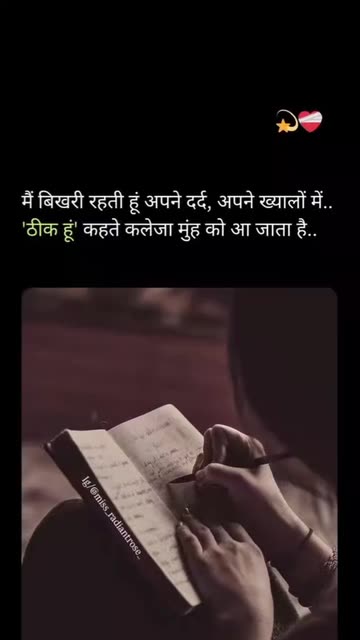 मैं बिखरी रहती हूं अपने दर्द, अपने ख्यालों में..
'ठीक हूं' कहते कलेजा मुंह को आ जाता है..
Ig/@miss_radiantrose_